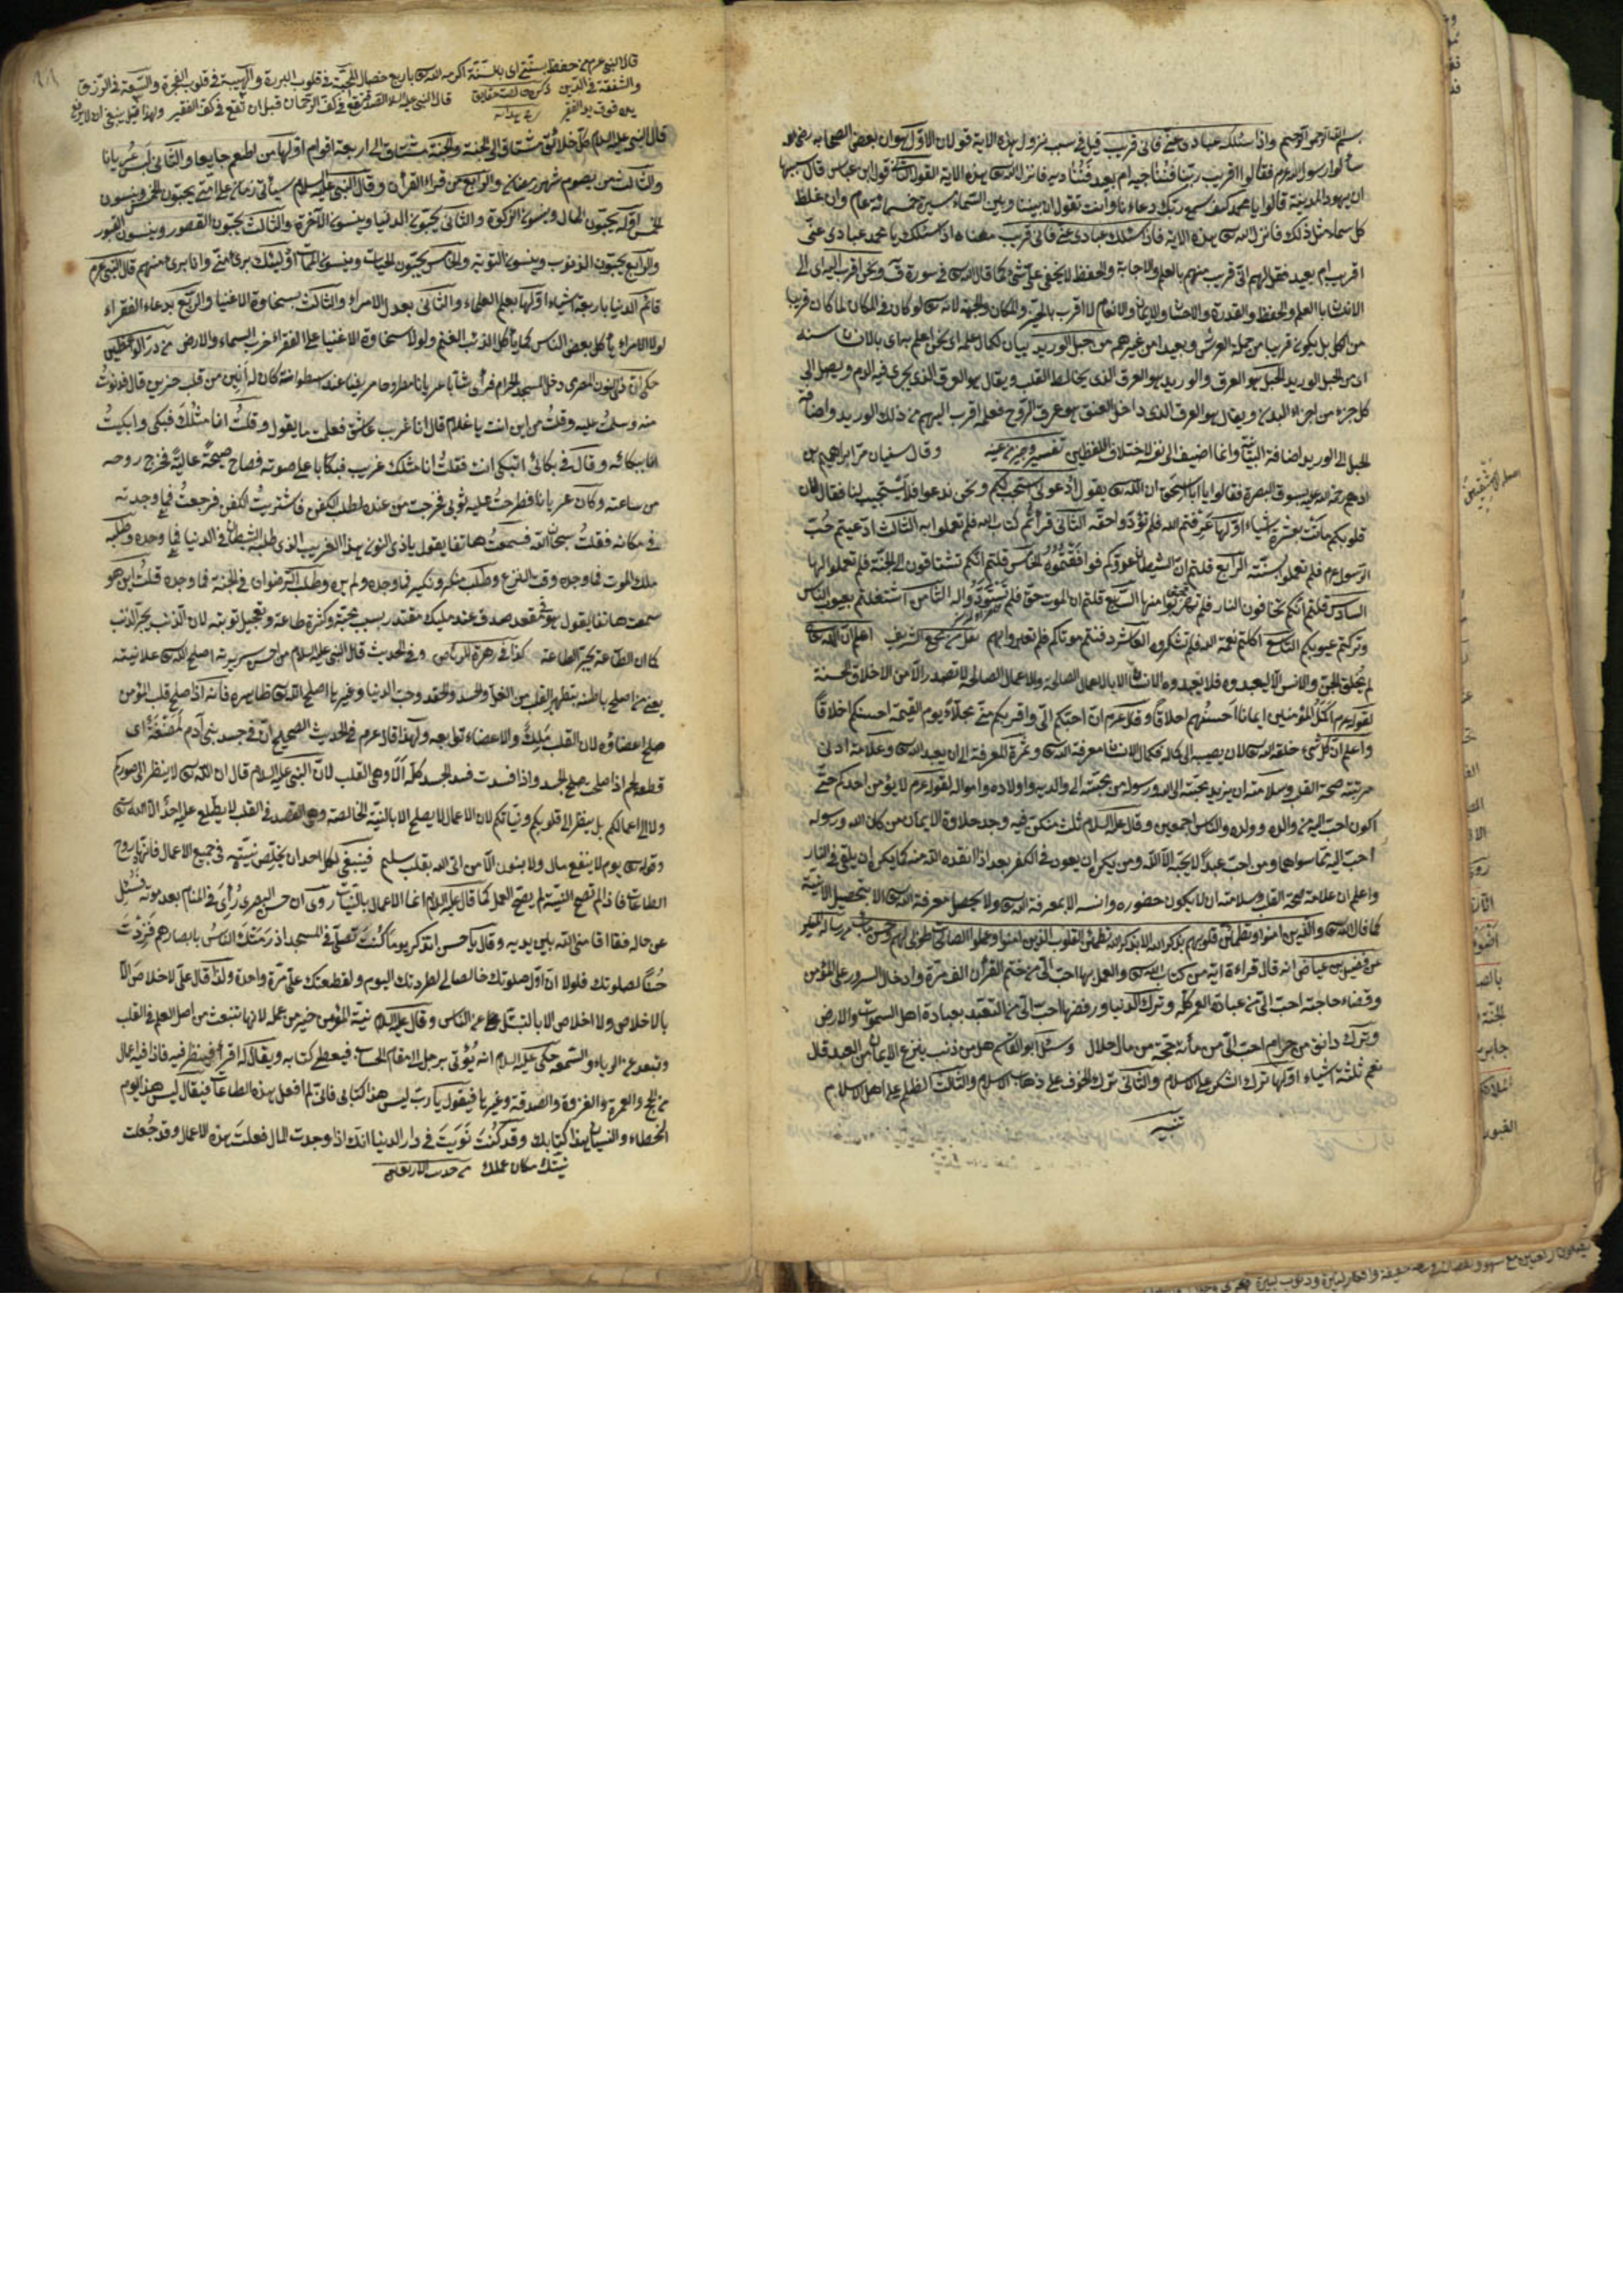 بسم الله الرحمن الرحيم واذا سئلك عبادى عنى فانى قريب قيل فى سبب نزول هذه الاية قولان الاول هو ان بعض الصحابة رضى الله
سألوا رسول الله عرم فقالوا اقريب ربنا فنناجيه ام بعيد فنناديه فانزل الله تع هذه الاية القول الثانى قول ابن عباس قال سببها
ان يهود المدينة قالوا يا محمد كيف يسمع ربك دعاءنا وانت تقول ان بيننا وبين السماء مسيرة خمسمائة عام وان غلظ
كل سماء مثل ذلك فانزل الله تع هذه الاية فاذا سئلك عبادى عنى فانى قريب معناه اذا سئلك يا محمد عبادى عنى
اقريب ام بعيد فقل لهم انى قريب منهم بالعلم والاجابة والحفظ لا يخفى على شئ كما قال الله تع فى سورة ق ونحن اقرب اليه اى الى
الانسان بالعلم والحفظ والقدرة والاحسان والايمان والانعام لا اقرب بالحيز والمكان والجهة لانه تع لو كان فى المكان لما كان قريبا
من الكل بل يكون قريبا من حملة العرش وبعيدا من غيرهم من حبل الوريد بيان لكمال علمه اى نحن اعلم بحال الانسان
اى من الحبل الوريد الحبل هو العرق والوريد هو العرق الذى يخالط القلب ويقال هو العرق الذى يجرى فيه الدم ويصل الى
كل جزء من اجزاء البدن ويقال هو العرق الذى داخل العنق هو عرق الروح فعلمه اقرب اليهم من ذلك الوريد واضافة
الحبل الى الوريد اضافة البيان وانما اضيف الى نفسه لاختلاف اللفظين تفسير وقال سفيان مر ابراهيم بن
ادهم رحمه الله بسوق البصرة فقالوا يا ابا اسحق ان الله تع يقول ادعونى استجب لكم ونحن ندعوا فلا يستجيب لنا فقال لان
قلوبكم ماتت بعشرة اشياء اولها عرفتم الله فلم تؤدوا حقه الثانى قرأتم كتاب الله فلم تعملوا به الثالث ادعيتم حب
الرسول عرم فلم تعملوا بسنته الرابع قلتم ان الشيطان عدوكم فوافقتموه الخامس قلتم انكم تشتاقون الى الجنة فلم تعملوا لها
السادس قلتم انكم تخافون النار فلم تهربوا منها السابع قلتم ان الموت حق فلم تستعدوا له الثامن اشتغلتم بعيوب الناس
وتركتم عيوبكم التاسع اكلتم نعمة الله فلم تشكروه العاشر دفنتم موتاكم فلم تعتبروا بهم اعلم ان الله تع
لم يخلق الجن والانس الا ليعبدوه فلا يعبدوه الانسان الا بالاعمال الصالحة والاعمال الصالحة لا تصدر الا من الاخلاق الحسنة
لقوله عرم اكمل المؤمنين ايمانا احسنهم اخلاقا وقال عرم ان احبكم الى واقربكم منى مجلسا يوم القيمة احسنكم اخلاقا
واعلم ان كل شئ خلقه الله تع لان يصيب الى كماله فكمال الانسان معرفة الله تع وثمرة المعرفة الى ان يعبد الله تع وعلامة ادنى
مرتبة صحة القلب وسلامته ان يزيد محبته الى الله ورسوله من محبته الى والديه واولاده وامواله لقوله عرم لا يؤمن احدكم حتى
اكون احب اليه من والده وولده والناس اجمعين وقال عليه السلام ثلث من كن فيه وجد حلاوة الايمان من كان الله ورسوله
احب اليه مما سواهما ومن احب عبدا لا يحبه الا لله ومن يكره ان يعود فى الكفر بعد اذ انقذه الله منه كما يكره ان يلقى فى النار
واعلم ان علامة صحة القلب وسلامته ان لا يكون حضوره وانسه الا بمعرفة الله تع ولا يحصل معرفة الله تع الا بتحصيل الانسية
كما قال الله تع والذين امنوا وتطمئن قلوبهم بذكر الله الا بذكر الله تطمئن القلوب الذين امنوا وعملوا الصالحات طوبى لهم وحسن مآب
عن فضيل بن عياض انه قال قراءة اية من كتاب الله تع والعمل بها احب الى من ختم القرأن الف مرة وادخال السرور على المؤمن
وقضاء حاجته احب الى من عبادة العمر كله وترك الدنيا ورفضها احب الى من التعبد بعبادة اهل السموات والارض
وترك دانق من حرام احب الى من مائة حجة من مال حلال وسئل ابو القاسم هل من ذنب ينزع الايمان من العبد قال
نعم ثلثة اشياء اولها ترك الشكر على الاسلام والثانى ترك الخوف على ذهاب الاسلام والثالث الظلم على اهل الاسلام
قال النبى عرم من حفظ سنتى اى بالسنة اكرمه الله تع باربع خصال المحبة فى قلوب البررة والهيبة فى قلوب الفجرة والسعة فى الرزق
والشفقة فى الدين قال النبى عليه السلام الصدقة تقع فى كف الرحمان قبل ان تقع فى كف الفقير ولهذا قيل ينبغى ان لا يرفع
يده فوق يد الفقير
قال النبى عليه السلام كل خلائق مشتاق الى الجنة والجنة مشتاق الى اربعة اقوام اولها من اطعم جايعا والثانى لبس عريانا
والثالث من يصوم شهر رمضان والرابع من قراء القرأن وقال النبى عليه السلام سيأتى زمان على امتى يحبون الخمس وينسون
الخمس اوله يحبون المال وينسون الزكوة والثانى يحبون الدنيا وينسون الآخرة والثالث يحبون القصور وينسون القبور
والرابع يحبون الذنوب وينسون التوبة والخامس يحبون الحيات وينسون الممات اولئيك برئ منى وانا برئ منهم قال النبى عرم
قائم الدنيا باربعة اشياء اولها بعلم العلماء والثانى بعدل الامراء والثالث بسخاوة الاغنياء والرابع بدعاء الفقراء
لولا الامراء يأكل بعض الناس كما يأكل الذئب الغنم ولولا سخاوة الاغنياء على الفقراء خرب السماء والارض من در الواعظين
حكى ان ذى النون المصرى دخل المسجد الحرام فرأى شابا عريانا مطروحا مريضا عند اسطوانة كان له انين من قلب حزين قال فدنوت
منه وسلمت عليه وقلت من اين انت يا غلام قال انا غريب عاشق فعلمت ما يقول وقلت انا مثلك فبكى وابكيت
انا ببكائه وقال فى بكائى اتبكى انت فقلت انا مثلك غريب فبكا باعلى صوته فصاح صيحة عالية فخرج روحه
من ساعته وكان عريانا فطرحت عليه ثوبى فخرجت من عنده لطلب الكفن فاشتريت الكفن فرجعت فما وجدته
فى مكانه فقلت سبحان الله فسمعت هاتفا يقول يا ذى النون هذا الغريب الذى طلبه الشيطان فى الدنيا فما وجده وطلبه
ملك الموت فما وجده وقت الفزع وطلب منكر ونكير فما وجده ولم يره وطلب الرضوان فى الجنة فما وجده قلت اين هو
سمعت هاتفا يقول هو فى مقعد صدق عند مليك مقتدر بسبب محبته وكثرة طاعته وتعجيل توبته لان الذنب يجر الذنب
كما ان الطاعة يجر الطاعة كذا فى زهرة الرياض وفى الحديث قال النبى عليه السلام من احسن سريرته اصلح الله تع علانيته
يعنى من اصلح باطنه بتطهير القلب من الغل والحسد والحقد وحب الدنيا وغيرها اصلح الله تع ظاهره فانه اذا صلح قلب المؤمن
صلح اعضاؤه لان القلب ملك والاعضاء توابعه ولهذا قال عرم فى الحديث الصحيح ان فى جسد بنى آدم لمضغة اى
قطعة لحم اذا صلحت صلح الجسد واذا فسدت فسد الجسد كله ألا وهى القلب لان النبى عليه السلام قال ان الله تع لا ينظر الى صوركم
ولا الى اعمالكم بل ينظر الى قلوبكم ونياتكم لان الاعمال لا يصلح الا بالنية الخالصة وهى القصد فى القلب لا يطلع عليه احد الا الله تع
وقوله تع يوم لا ينفع مال ولا بنون الا من اتى الله بقلب سليم فينبغى لكل احد ان يخلص نيته فى جميع الاعمال فانها روح
الطاعات فاذا لم تصح النية لم يصح العمل كما قال عليه السلام انما الاعمال بالنيات روى ان حسن البصرى رأى فى المنام بعد موته فسئل
عن حاله فقال اقامنى الله بين يديه وقال يا حسن اتذكر يوما كنت تصلى فى المسجد اذ رمتك الناس بابصارهم فزدت
حسنا لصلوتك فلولا ان اول صلوتك خالصا لى لطردتك اليوم ولقطعتك على مرة واحدة ولذا قال على لا خلاص الا
بالاخلاص ولا اخلاص الا بالتبتل عن الناس وقال عليه السلام نية المؤمن خير من عمله لانها تنبعث من اصل العلم فى القلب
وتبعد عن الرياء والسمعة حكى عليه السلام انه يؤتى برجل الى مقام الحساب فيعطى كتابه ويقال له اقرأ فينظر فيه فاذا فيه اعمال
من الحج والعمرة والغزوة والصدقة وغيرها فيقول يا رب ليس هذا كتابى فانى لم افعل هذه الطاعات فيقال ليس هذا يوم
الخطاء والنسيان هذا كتابك وقد كنت نويت فى دار الدنيا انك اذا وجدت المال فعلت هذه الاعمال وقد جعلت
نيتك مكان عملك من حديث الاربعين